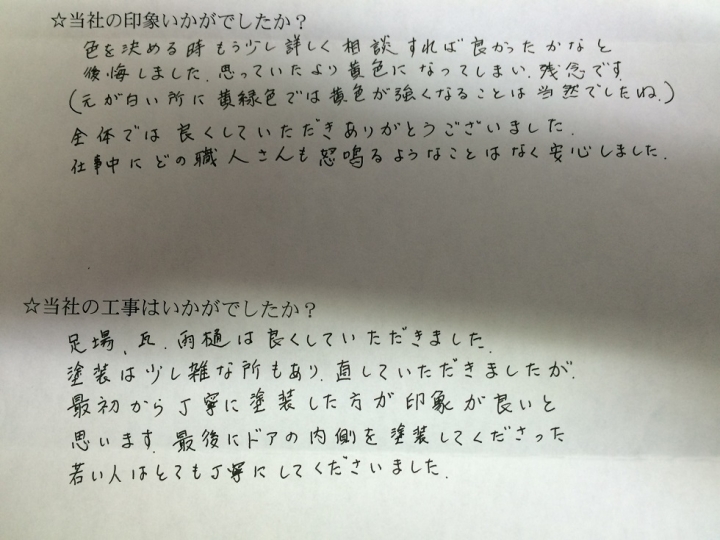 ☆当社の印象いかがでしたか？
色を決める時もう少し詳しく相談すれば良かったかなと
後悔しました。思っていたより黄色になってしまい、残念です。
(元が白い所に黄緑色では黄色が強くなることは当然でしたね。)
全体では良くしていただきありがとうございました。
仕事中にどの職人さんも怒鳴るようなことはなく安心しました。
☆当社の工事はいかがでしたか？
足場、瓦、雨樋は良くしていただきました。
塗装は少し雑な所もあり、直していただきましたが、
最初から丁寧に塗装した方が印象が良いと
思います。最後にドアの内側を塗装してくださった
若い人はとても丁寧にしてくださいました。